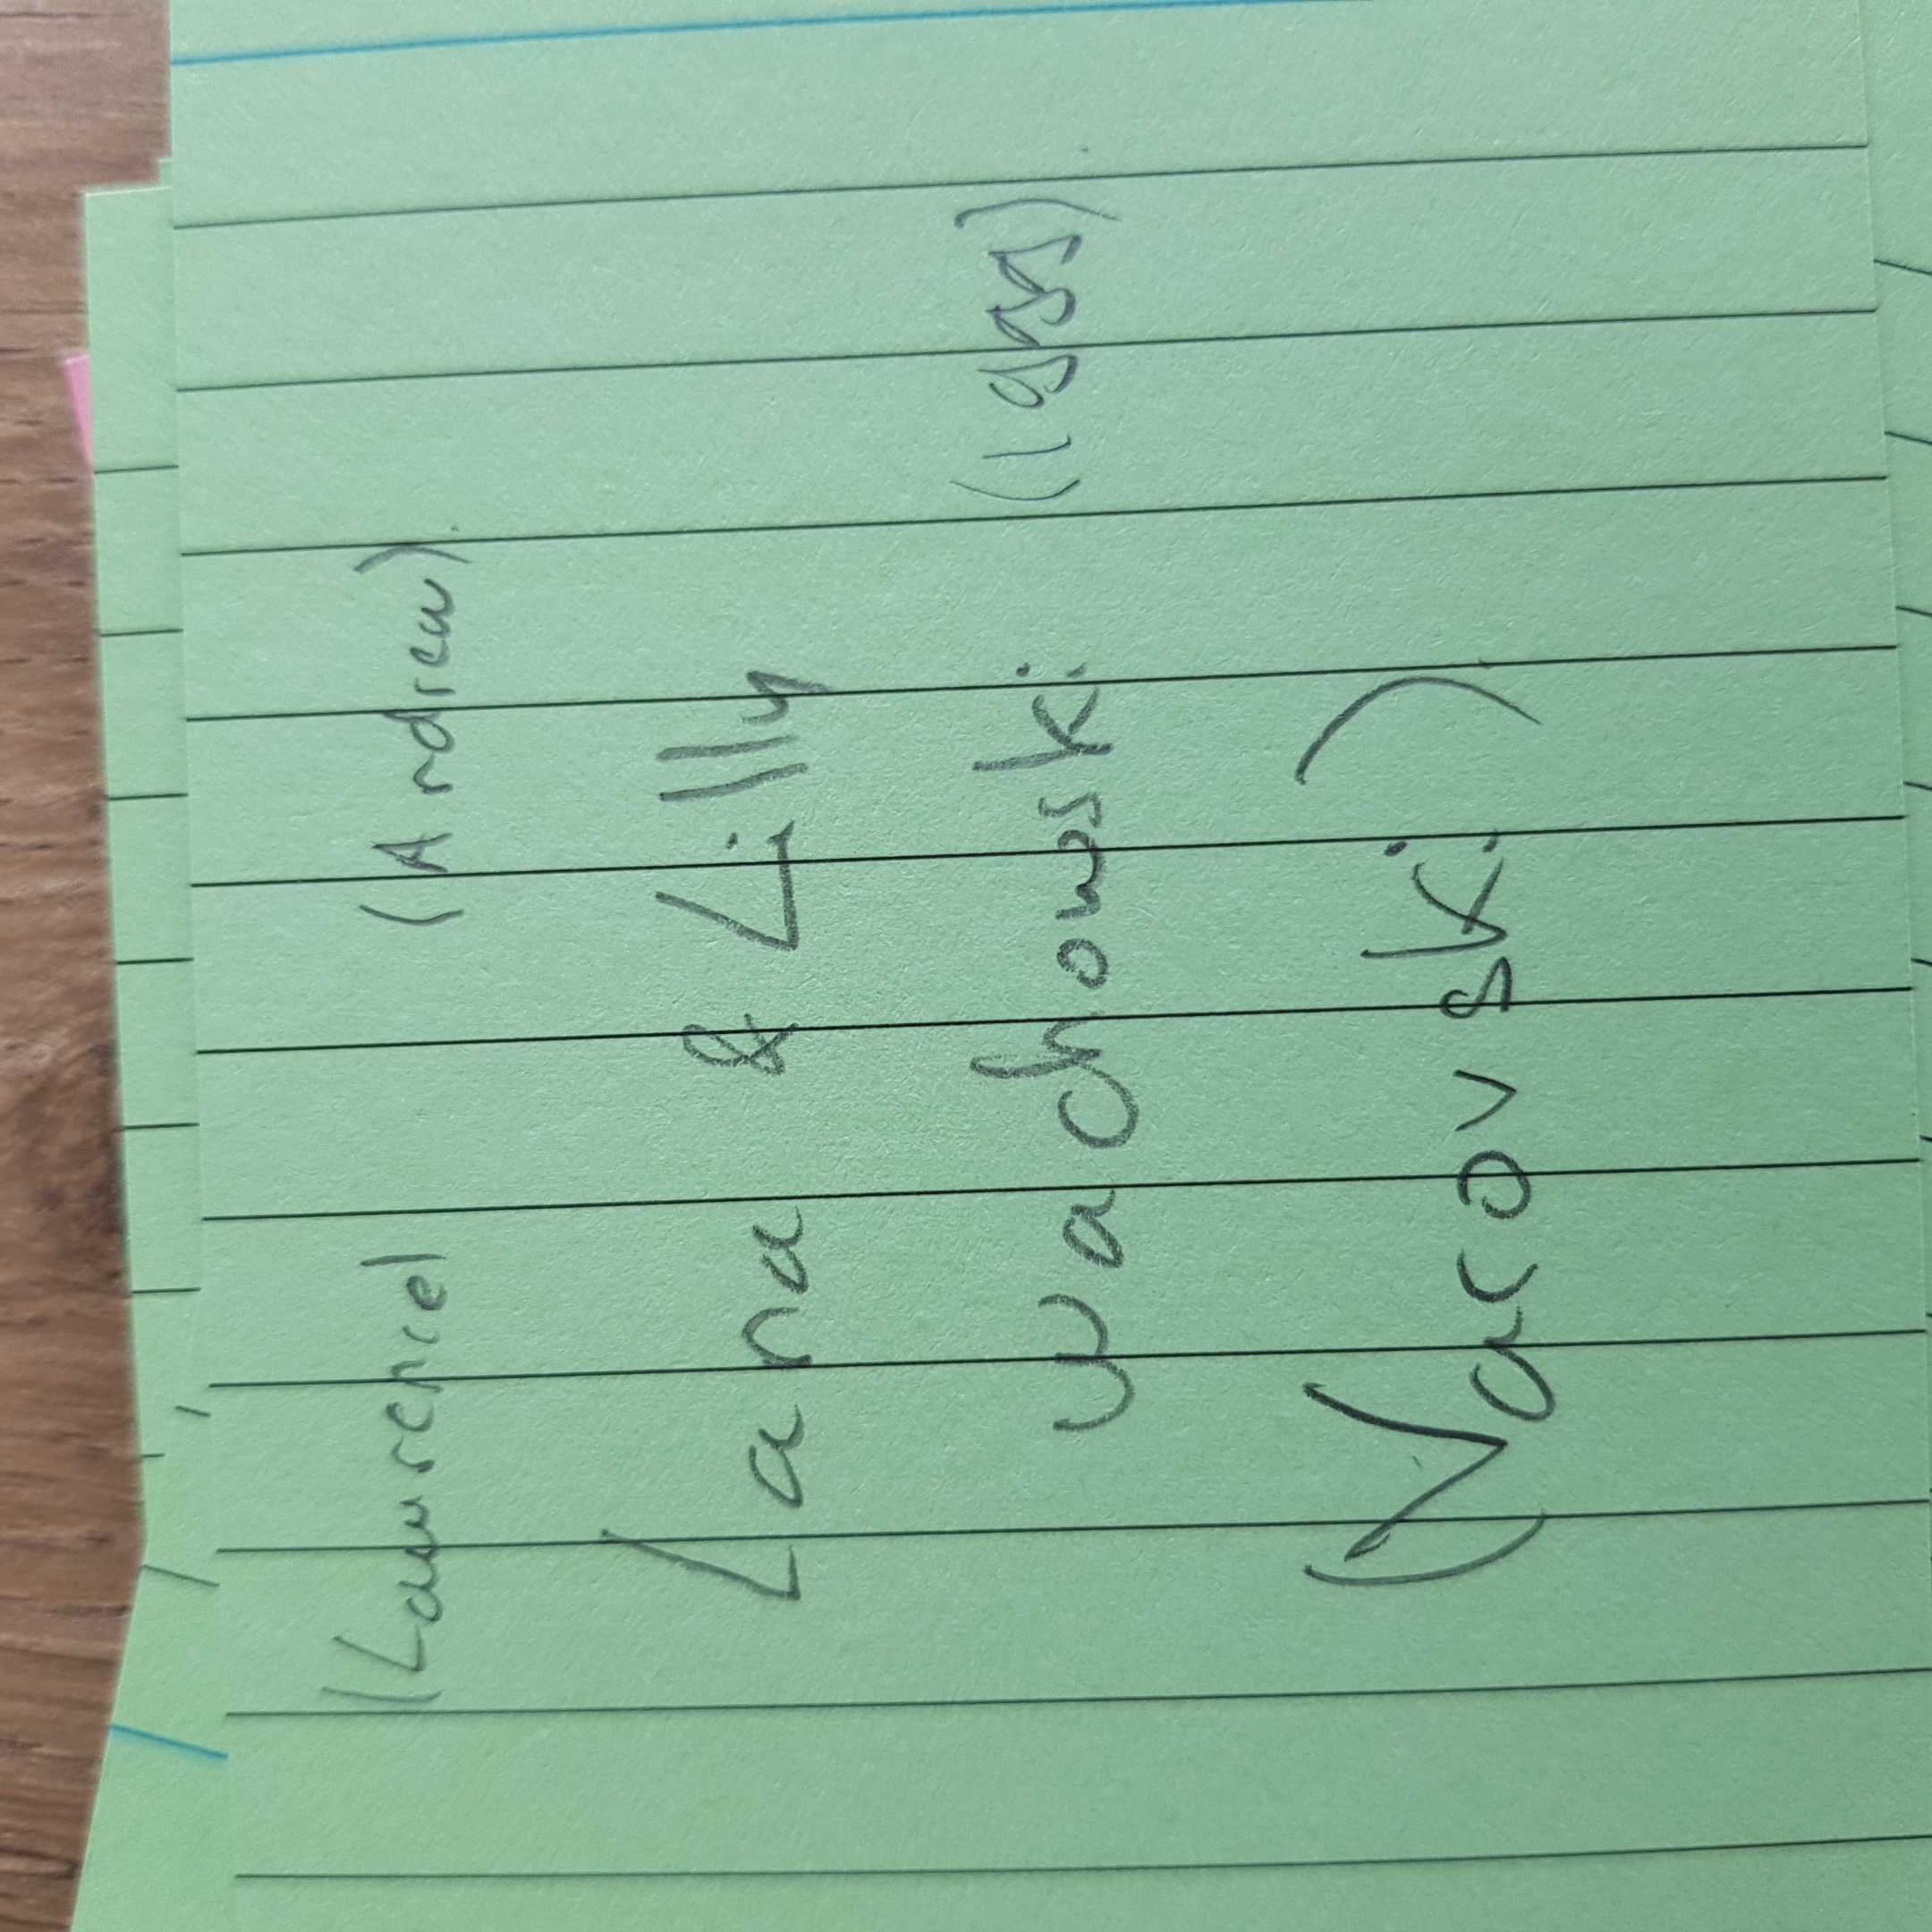 (Lawrence) (Andrew)
Lana & Lilly
Wachowski (1999)
(Vacovski)